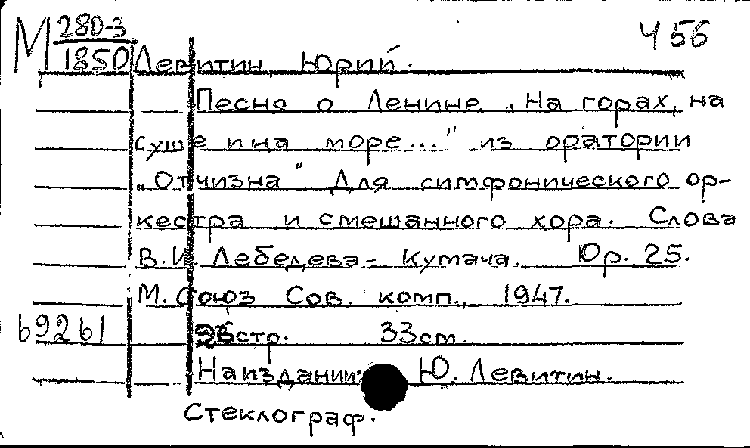 М 280-3 Ч 56
1850 Левитин Юрий.
Песнь о Ленине „На горах, на
суше и на море..." из оратории
„Отчизна" Для симфонического ор-
кестра и смешанного хора. Слова
В.И. Лебедева-Кумача. Юр. 25.
М. Союз Сов. комп., 1947.
69261 стр. 33 см.
На издании: Ю. Левитин.
Стеклограф.